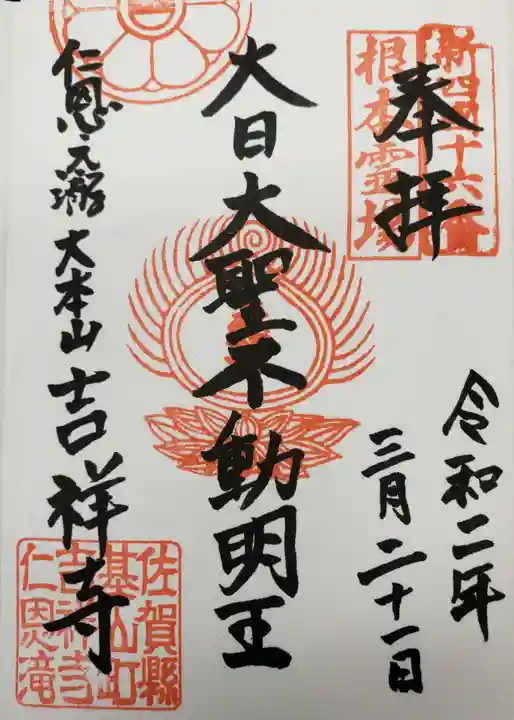 奉拝
根本霊場
令和二年
三月二十一日
大日大聖不動明王
仁恩之瀧 大本山 吉祥寺
佐賀縣
基山町
吉祥寺
仁恩滝